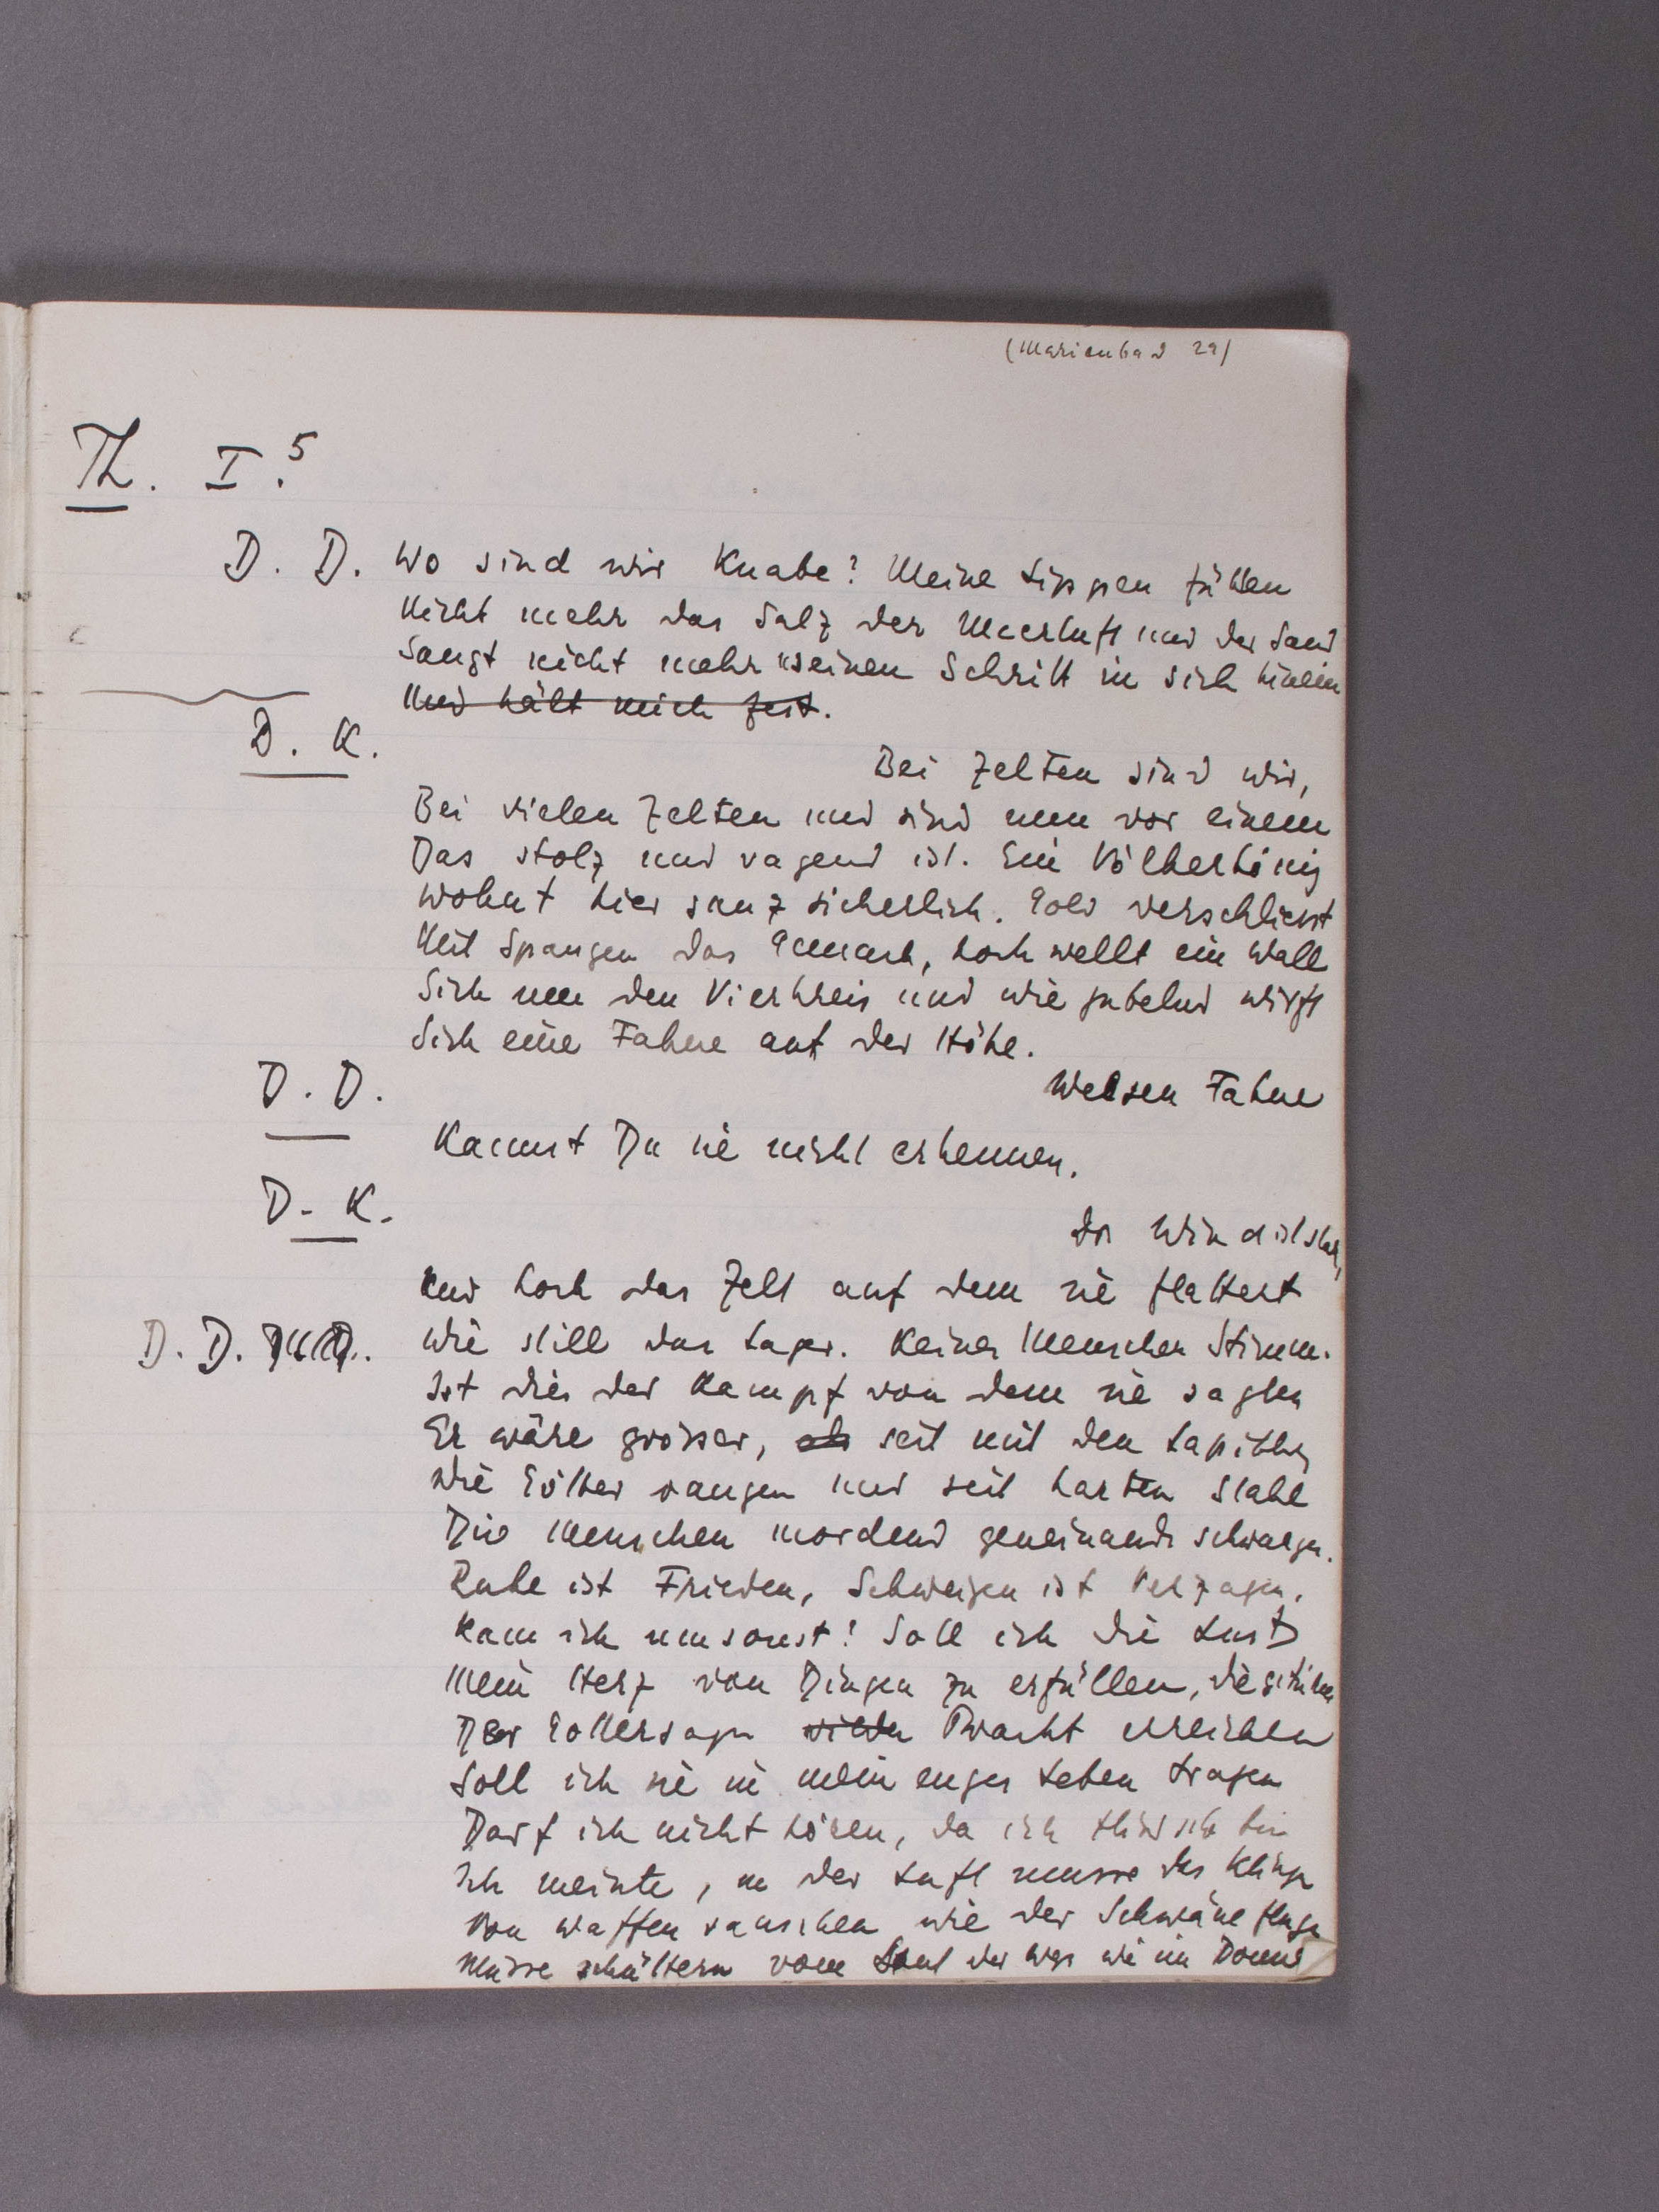 (Marienbad 29)
Th. I.5
D. D. Wo sind wir Knabe? Meine Lippen fühlen
Nicht mehr das Salz der Meerluft und der Sand
Saugt nicht mehr meinen Schritt in sich hinein
Und hält mich fest.
D. K.
Bei Zelten sind wir,
Bei vielen Zelten und sind nun vor einem
Das stolz und ragend ist. Ein Völkerkönig
Wohnt hier ganz sicherlich. Gold verschliesst
Mit Spangen das Gemach, hoch wellt ein Wall
Sich um den Vierkreis und wie jubelnd wirft
Sich eine Fahne auf der Höhe.
D. D.
Wessen Fahne
Kannst Du sie nicht erkennen.
D. K.
Der Wind ist stark,
Und hoch das Zelt auf dem sie flattert
D. D. Wie still das Lager. Keines Menschen Stimme.
Ist dies der Kampf von dem sie sagten
Er wäre grösser, als seit mit den Lapithen
Die Götter rangen und seit harten Stahl
Die Menschen mordend geneinander schwangen.
Ruhe ist Frieden, Schweigen ist Verzagen.
Kam ich umsonst! Soll ich die Lust
Mein Herz von Dingen zu erfüllen, die
Der Göttersagen wilden Pracht erreichten
Soll ich sie in mein enges Leben tragen
Darf ich nicht hören, da ich bin
Ich meinte, in der Luft müsse das Klingen
Von Waffen rauschen wie der Schwäne Fluge
Müsse schüttern vom der wie im Donner